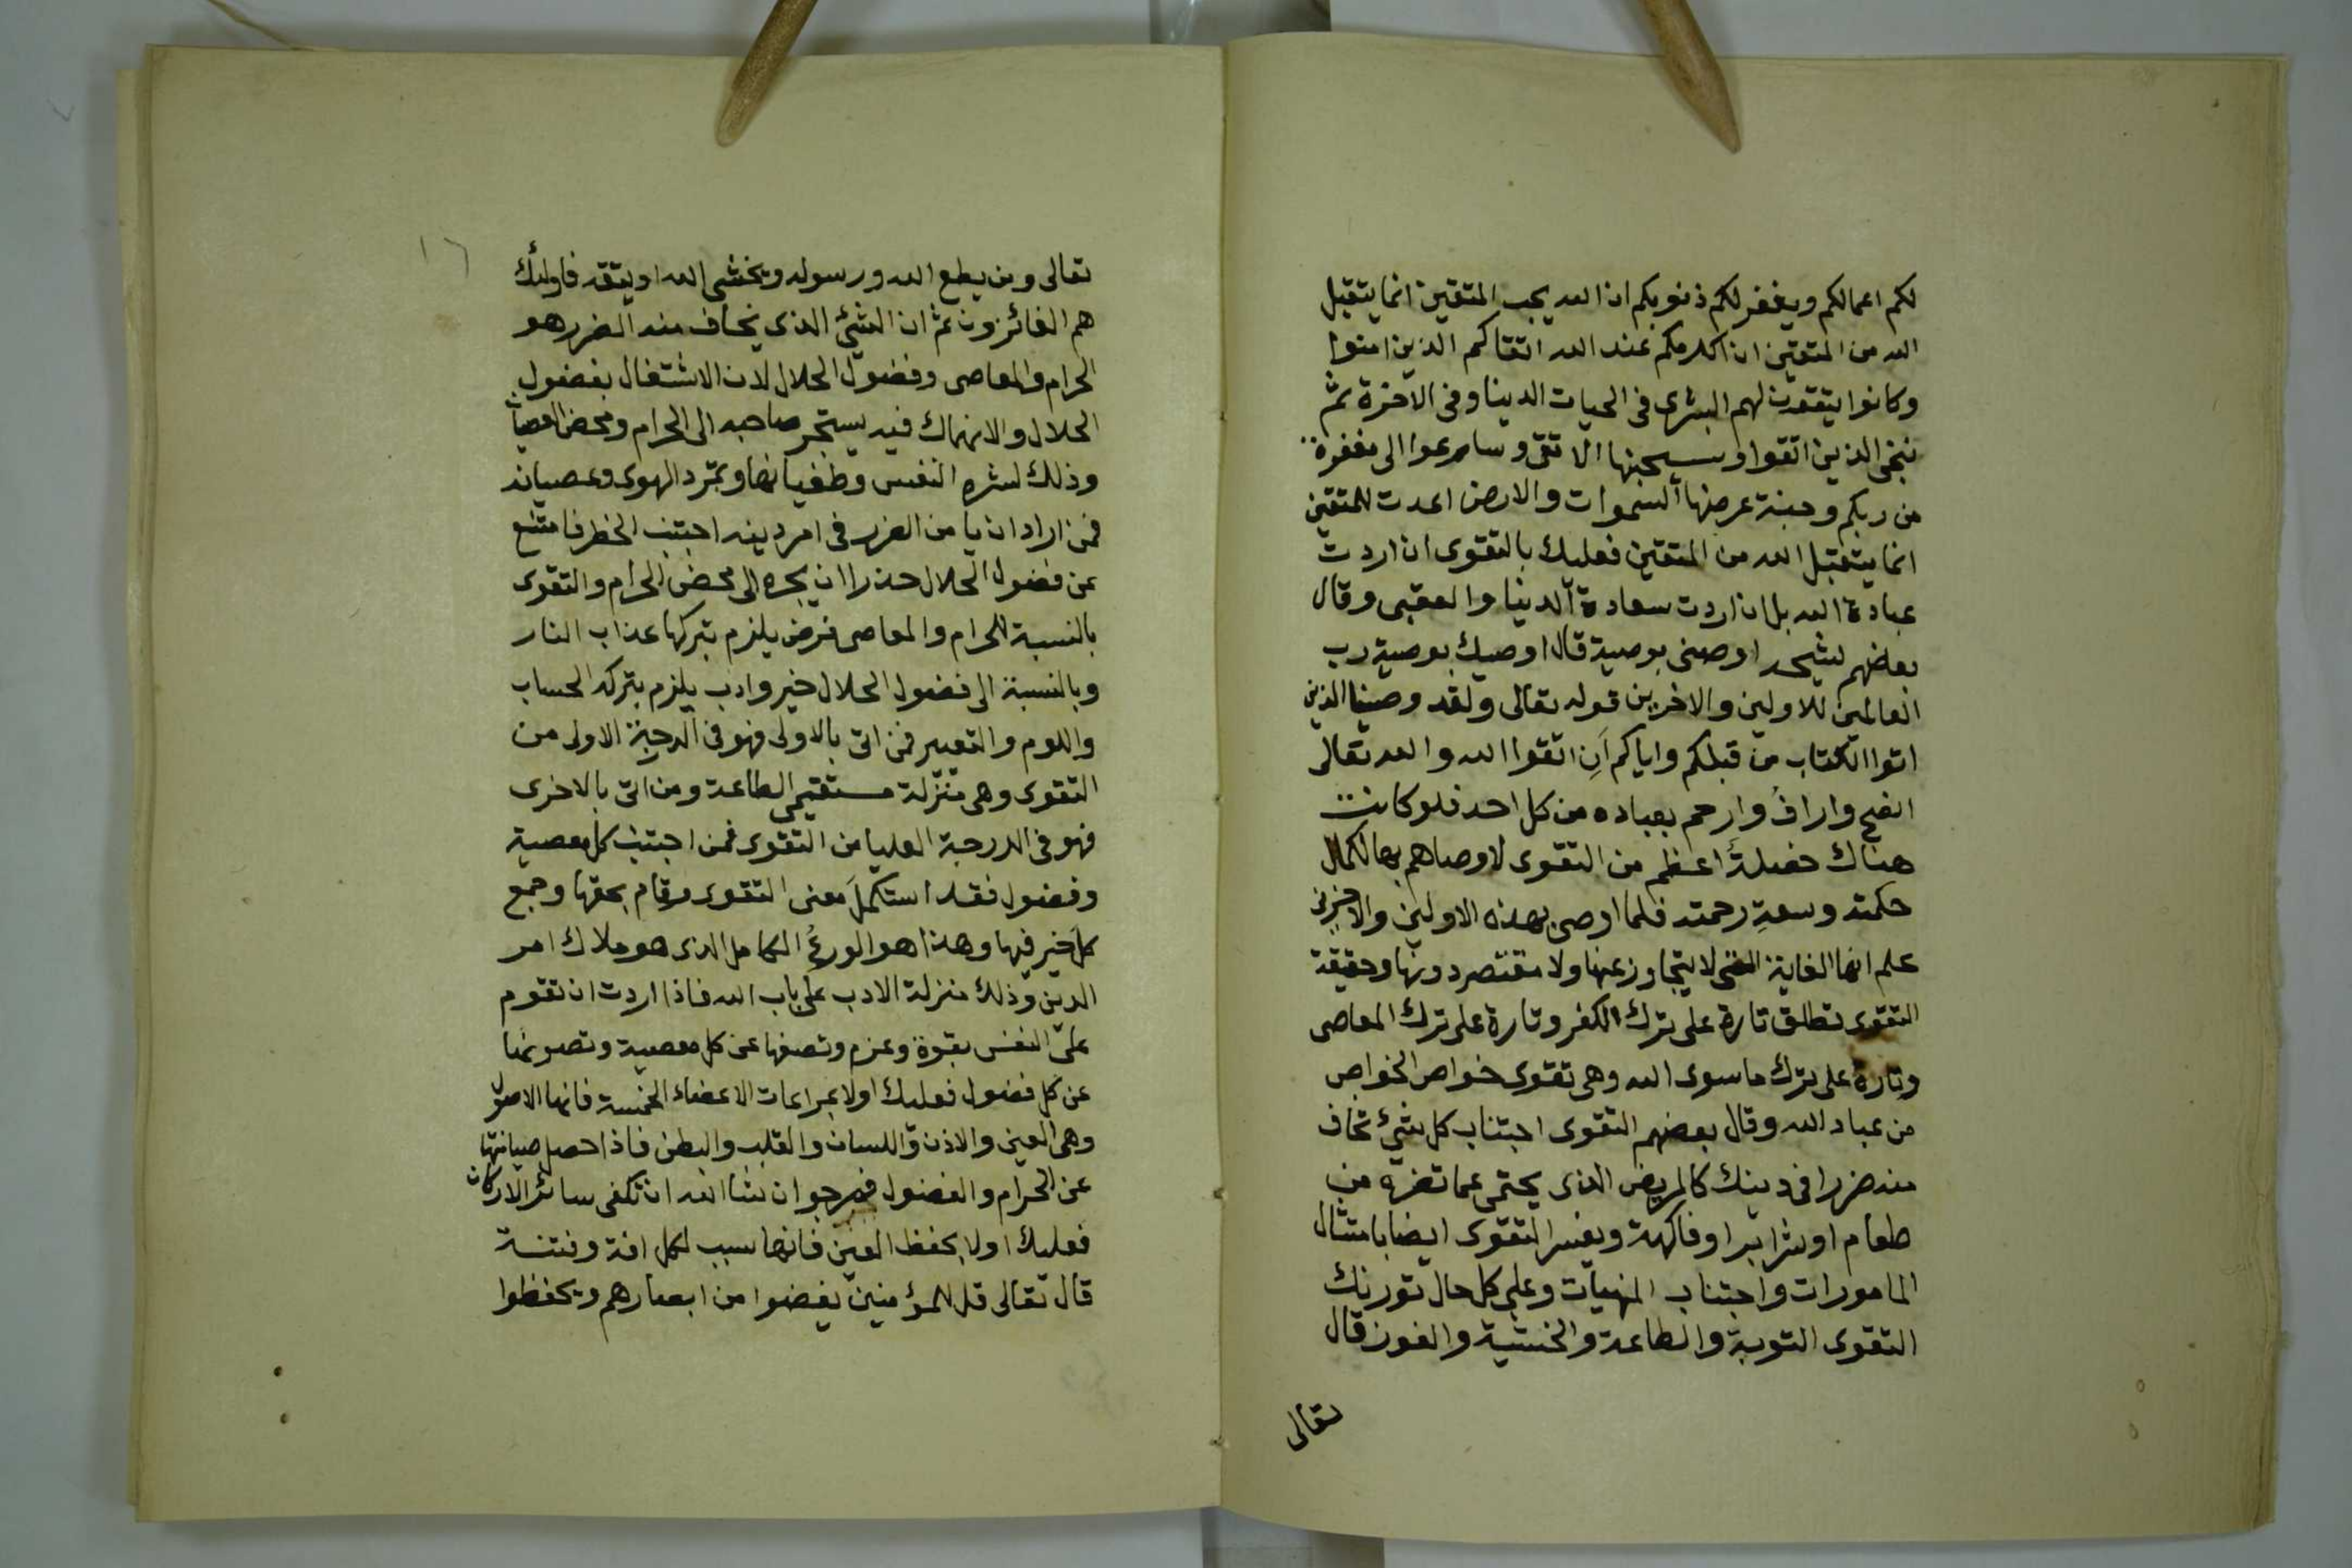 لكم اعمالكم ويغفر لكم ذنوبكم ان الله يحب المتقين انما يتقبل
الله من المتقين ان اكرمكم عند الله اتقاكم الذين امنوا
وكانوا يتقون لهم البشرى فى الحيات الدينا وفى الاخرة ثم
ننجى الذين اتقوا وسيجنبها الاتقى وسارعوا الى مغفرة
من ربكم وجنة عرضها السموات والارض اعدت للمتقين
انما يتقبل الله من المتقين فعليك بالتقوى ان اردت
عبادة الله بل ان اردت سعادة الدينا والعقبى وقال
بعضهم لشيخه اوصنى بوصية قال اوصيك بوصية رب
العالمين للاولين والاخرين قوله تعالى ولقد وصينا الذين
اتوا الكتاب من قبلكم واياكم اَنِ اتقوا الله والله تعالى
انصح واراف وارحم بعباده من كل احد فلو كانت
هناك خصلةٌ اعظم من التقوى لاوصاهم بها لكمال
حكمته وسعةِ رحمته فلما اوصى بهذه الاولين والاخرين
علم انها الغاية التى لا يتجاوز عنها ولا مقتصر دونها وحقيقة
التقوى تطلق تارة على ترك الكفر وتارة على ترك المعاصى
وتارة على ترك ما سوى الله وهى تقوى خواص الخواص
من عباد الله وقال بعضهم التقوى اجتناب كل شئ تخاف
منه ضررا فى دينك كالمريض الذى يحتمى عما تضره من
طعام او شراب او فاكهة ويفسر التقوى ايضا بامتثال
المامورات واجتناب المنهيات وعلى كل حال تورثك
التقوى التوبة والطاعة والخشية والفوز قال
تعالى
١٦
تعالى ومن يطع الله ورسوله ويخشى الله ويتقه فاولئك
هم الفائزون ثم ان الشئ الذى يخاف منه الضرر هو
الحرام والمعاصى وفضول الحلال لان الاشتغال بفضول
الحلال والانهماك فيه يستجر صاحبه الى الحرام ومحض العصيان
وذلك لشره النفس وطغيانها وتمرد الهوى وعصيانه
فمن اراد ان يامن الضرر فى امر دينه اجتنب الخطر فامتنع
عن فضول الحلال حذرا ان يجره الى محض الحرام والتقوى
بالنسبة للحرام والمعاصى فرض يلزم بتركها عذاب النار
وبالنسبة الى فضول الحلال خير وادب يلزم بتركه الحساب
واللوم والتعيير فمن اتى بالاولى فهو فى الدرجة الاولى من
التقوى وهى منزلة مستقيمى الطاعة ومن اتى بالاخرى
فهو فى الدرجة العليا من التقوى فمن اجتنب كل معصية
وفضول فقد استكملَ معنى التقوى وقام بحقها وجمع
كل خير فيها وهذا هو الورعُ الكامل الذى هو ملاك امر
الدين وذلك منزلة الادب على باب الله فاذا اردت ان تقوم
على النفس بقوة وعزم وتصفها عن كل معصية وتصونها
عن كل فضول فعليك اولا بمراعات الاعضاء الخمسة فانها الاصول
وهى العين والاذن واللسان والقلب والبطن فاذا حصل صيانتها
عن الحرام والفضول فمرجو ان شا الله ان تكفى سائر الاركان
فعليك اولا بحفظ العين فانها سبب لكل افة وفتنة
قال تعالى قل للمؤمنين يغضوا من ابصارهم ويحفظوا